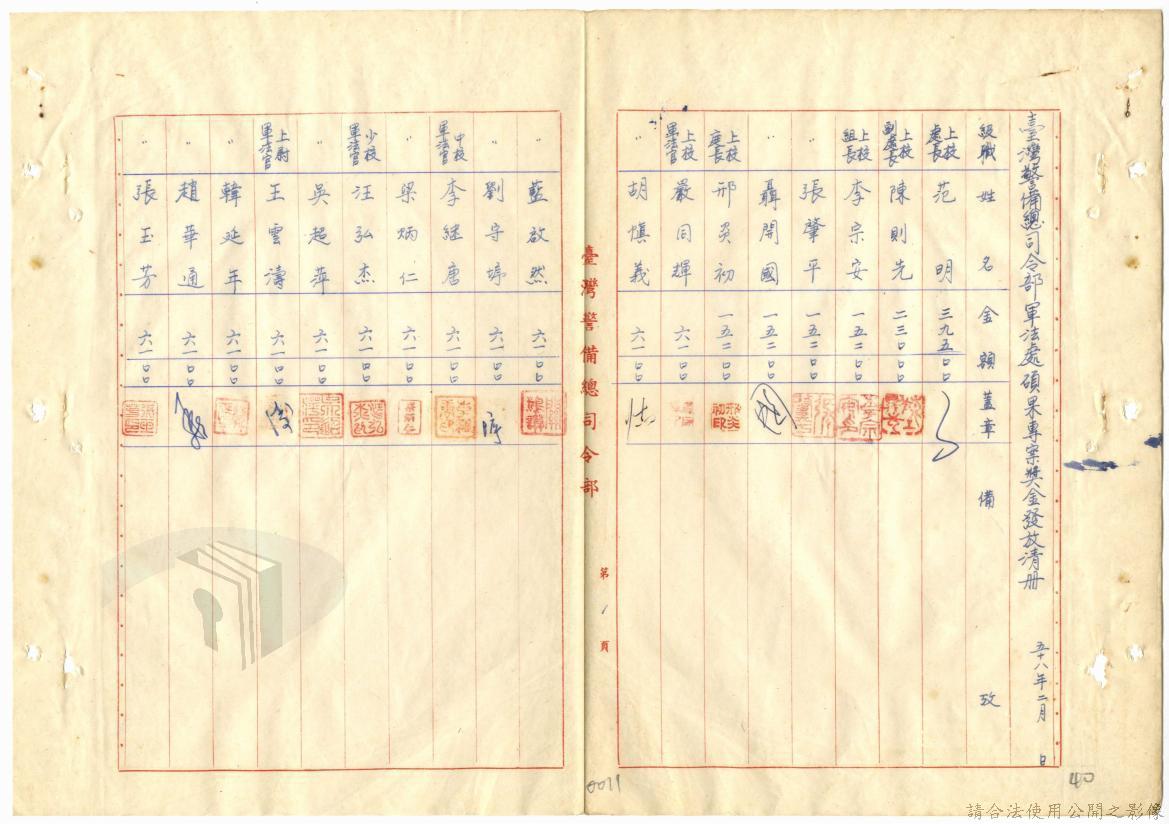 臺灣警備總司令部軍法處碩果專案獎金發放清冊
五十八年二月 日
級職 姓名 金額 蓋章 備攷
上校處長 范明 三九五〇〇
上校副處長 陳則先 二三〇〇〇
上校組長 李宗安 一五二〇〇
〃 張肇平 一五二〇〇
〃 聶開國 一五二〇〇
上校庭長 邢炎初 一五二〇〇
上校軍法官 嚴同輝 六一〇〇
〃 胡慎義 六一〇〇
臺灣警備總司令部
第 1 頁
〃 藍啟然 六一〇〇
〃 劉守 六一〇〇
中校軍法官 李繼唐 六一〇〇
〃 梁炳仁 六一〇〇
少校軍法官 汪弘杰 六一〇〇
〃 吳超萍 六一〇〇
上尉軍法官 王雲濤 六一〇〇
〃 韓延年 六一〇〇
〃 趙華通 六一〇〇
〃 張玉芳 六一〇〇
0011
40
請合法使用公開之影像